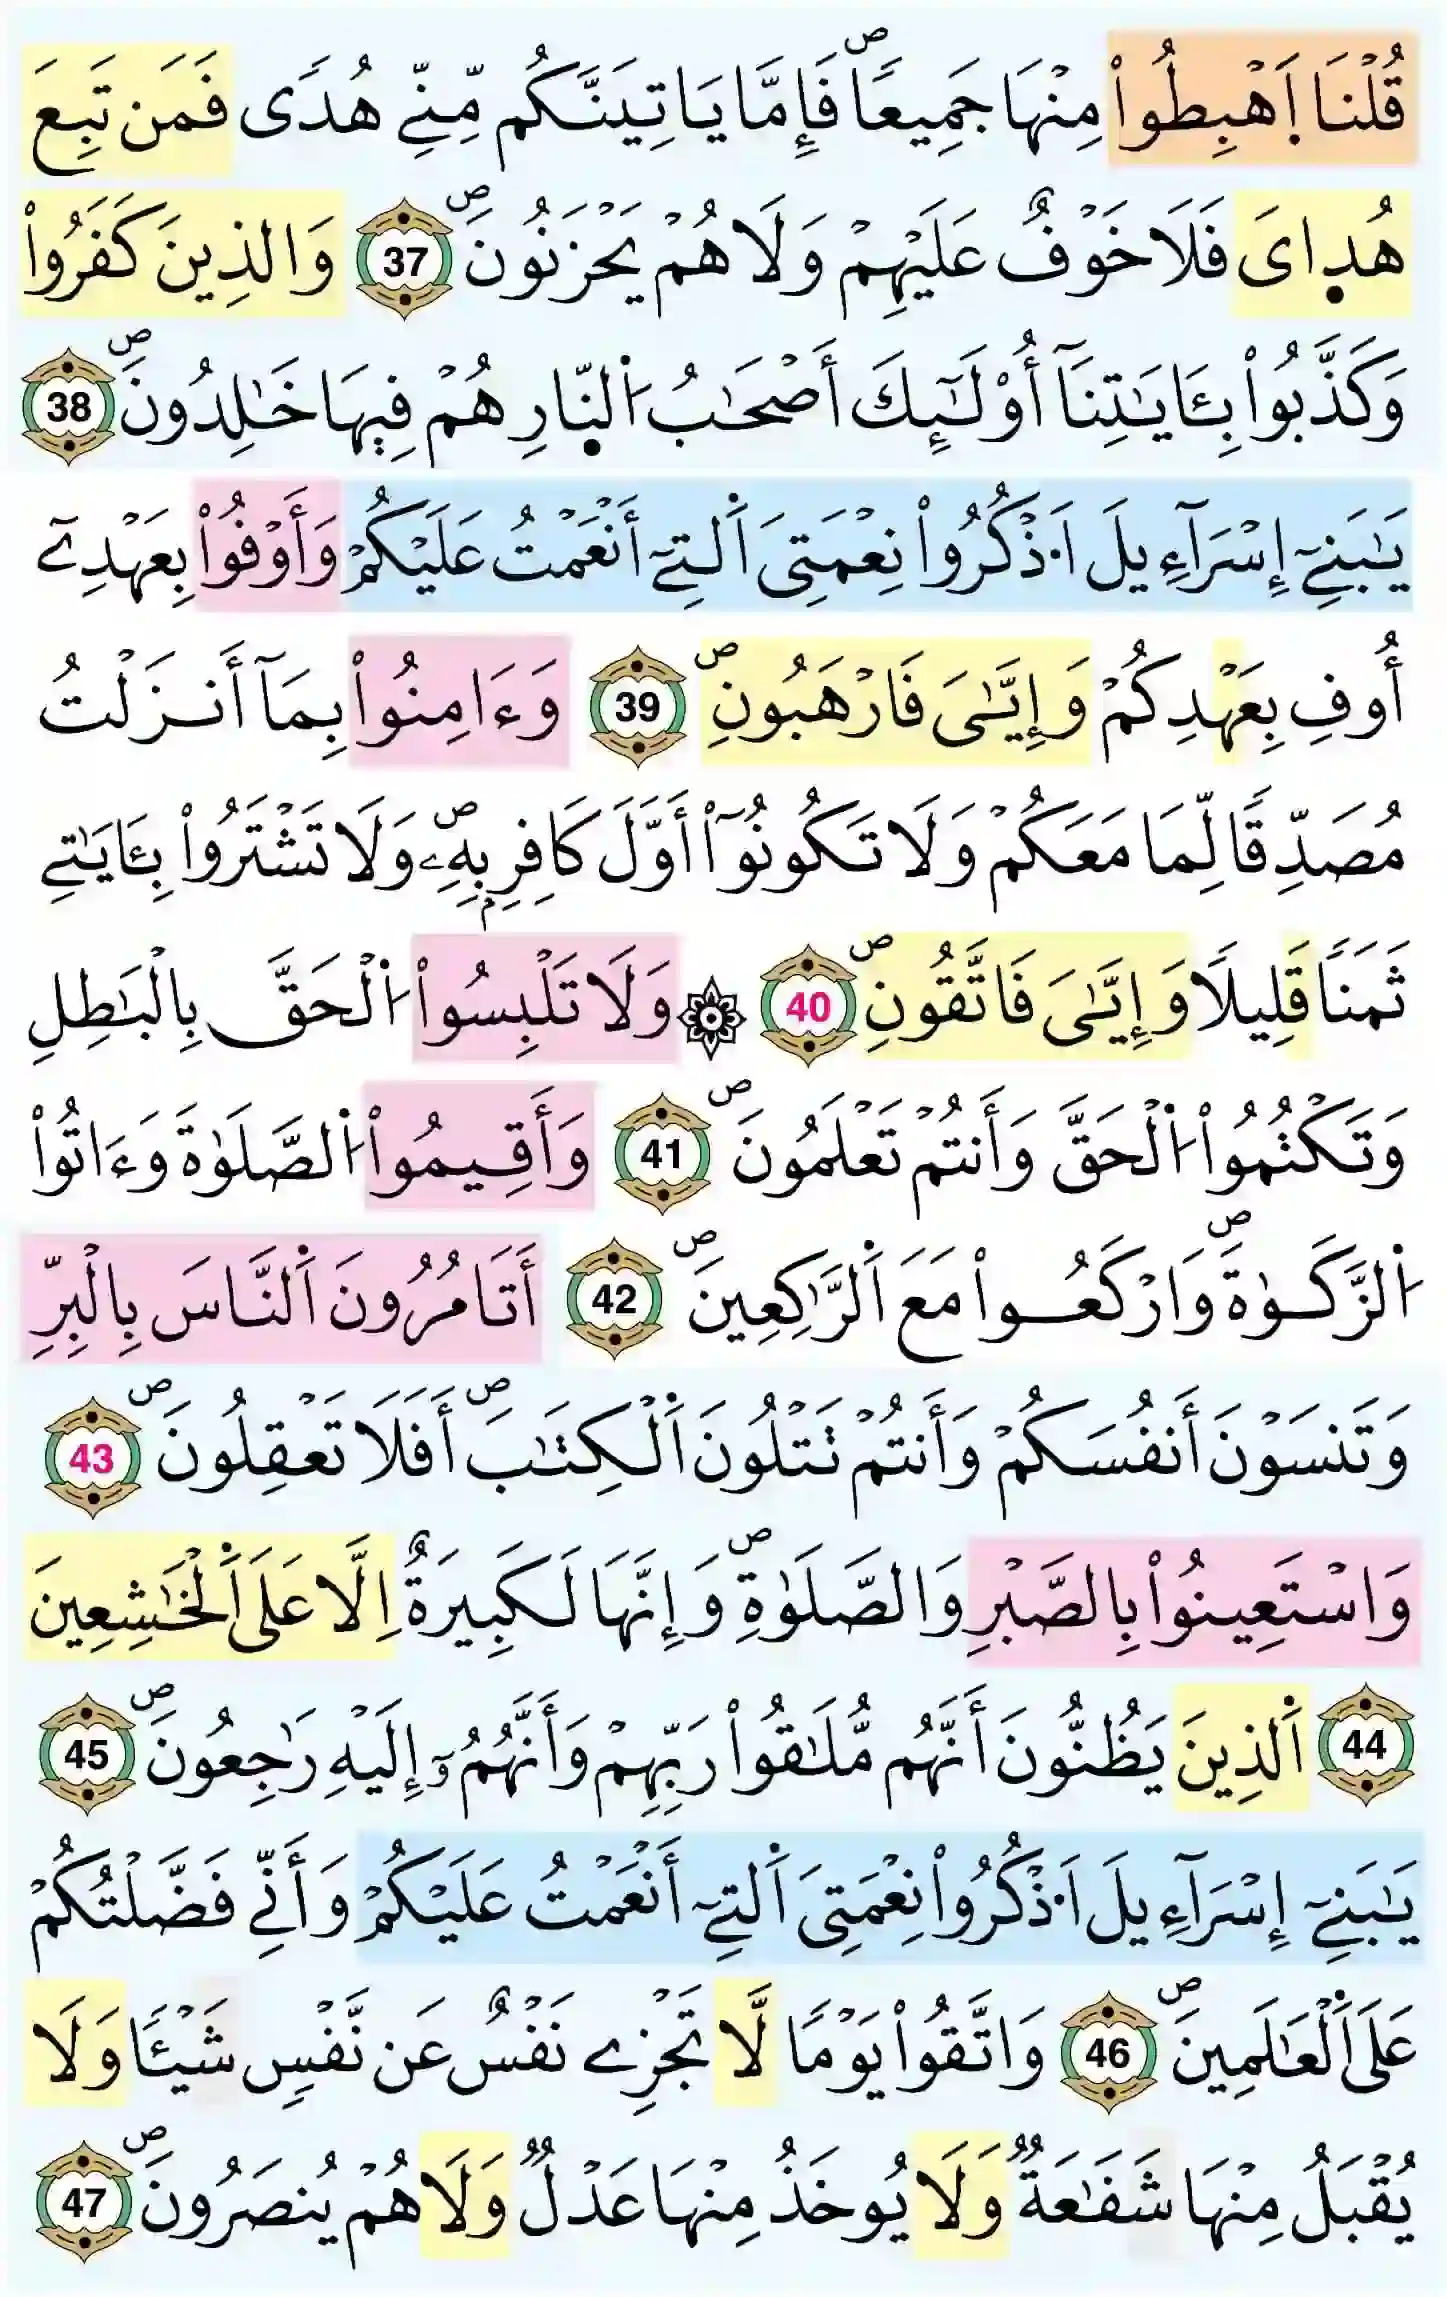 قُلْنَا اَ۪هْبِطُواْ مِنْهَا جَمِيعاٗۖ فَإِمَّا يَاتِيَنَّكُم مِّنِّے هُدٗى فَمَن تَبِعَ
هُد۪ايَ فَلَا خَوْفٌ عَلَيْهِمْ وَلَا هُمْ يَحْزَنُونَۖ 37 وَالذِينَ كَفَرُواْ
وَكَذَّبُواْ بِـَٔايَٰتِنَآ أُوْلَٰٓئِكَ أَصْحَٰبُ اُ۬لنّ۪ارِ هُمْ فِيهَا خَٰلِدُونَۖ 38
يَٰبَنِےٓ إِسْرَآءِيلَ اَ۟ذْكُرُواْ نِعْمَتِيَ اَ۬لتِےٓ أَنْعَمْتُ عَلَيْكُمْ وَأَوْفُواْ بِعَهْدِےٓ
أُوفِ بِعَهْدِكُمْ وَإِيَّٰيَ فَارْهَبُونِۖ 39 وَءَامِنُواْ بِمَآ أَنزَلْتُ
مُصَدِّقاٗ لِّمَا مَعَكُمْ وَلَا تَكُونُوٓاْ أَوَّلَ كَافِرِۢ بِهِۦۖ وَلَا تَشْتَرُواْ بِـَٔايَٰتِے
ثَمَناٗ قَلِيلاٗ وَإِيَّٰيَ فَاتَّقُونِۖ 40 ۞ وَلَا تَلْبِسُواْ اُ۬لْحَقَّ بِالْبَٰطِلِ
وَتَكْتُمُواْ اُ۬لْحَقَّ وَأَنتُمْ تَعْلَمُونَۖ 41 وَأَقِيمُواْ اُ۬لصَّلَوٰةَ وَءَاتُواْ
اُ۬لزَّكَوٰةَۖ وَارْكَعُواْ مَعَ اَ۬لرَّٰكِعِينَۖ 42 أَتَامُرُونَ اَ۬لنَّاسَ بِالْبِرِّ
وَتَنسَوْنَ أَنفُسَكُمْ وَأَنتُمْ تَتْلُونَ اَ۬لْكِتَٰبَۖ أَفَلَا تَعْقِلُونَۖ 43
وَاسْتَعِينُواْ بِالصَّبْرِ وَالصَّلَوٰةِۖ وَإِنَّهَا لَكَبِيرَةٌ اِلَّا عَلَي اَ۬لْخَٰشِعِينَ
44 اَ۬لذِينَ يَظُنُّونَ أَنَّهُم مُّلَٰقُواْ رَبِّهِمْ وَأَنَّهُمُۥٓ إِلَيْهِ رَٰجِعُونَۖ 45
يَٰبَنِےٓ إِسْرَآءِيلَ اَ۟ذْكُرُواْ نِعْمَتِيَ اَ۬لتِےٓ أَنْعَمْتُ عَلَيْكُمْ وَأَنِّے فَضَّلْتُكُمْ
عَلَي اَ۬لْعَٰلَمِينَۖ 46 وَاتَّقُواْ يَوْماٗ لَّا تَجْزِے نَفْسٌ عَن نَّفْسٖ شَيْـٔاٗ وَلَا
يُقْبَلُ مِنْهَا شَفَٰعَةٞ وَلَا يُوخَذُ مِنْهَا عَدْلٞ وَلَا هُمْ يُنصَرُونَۖ 47